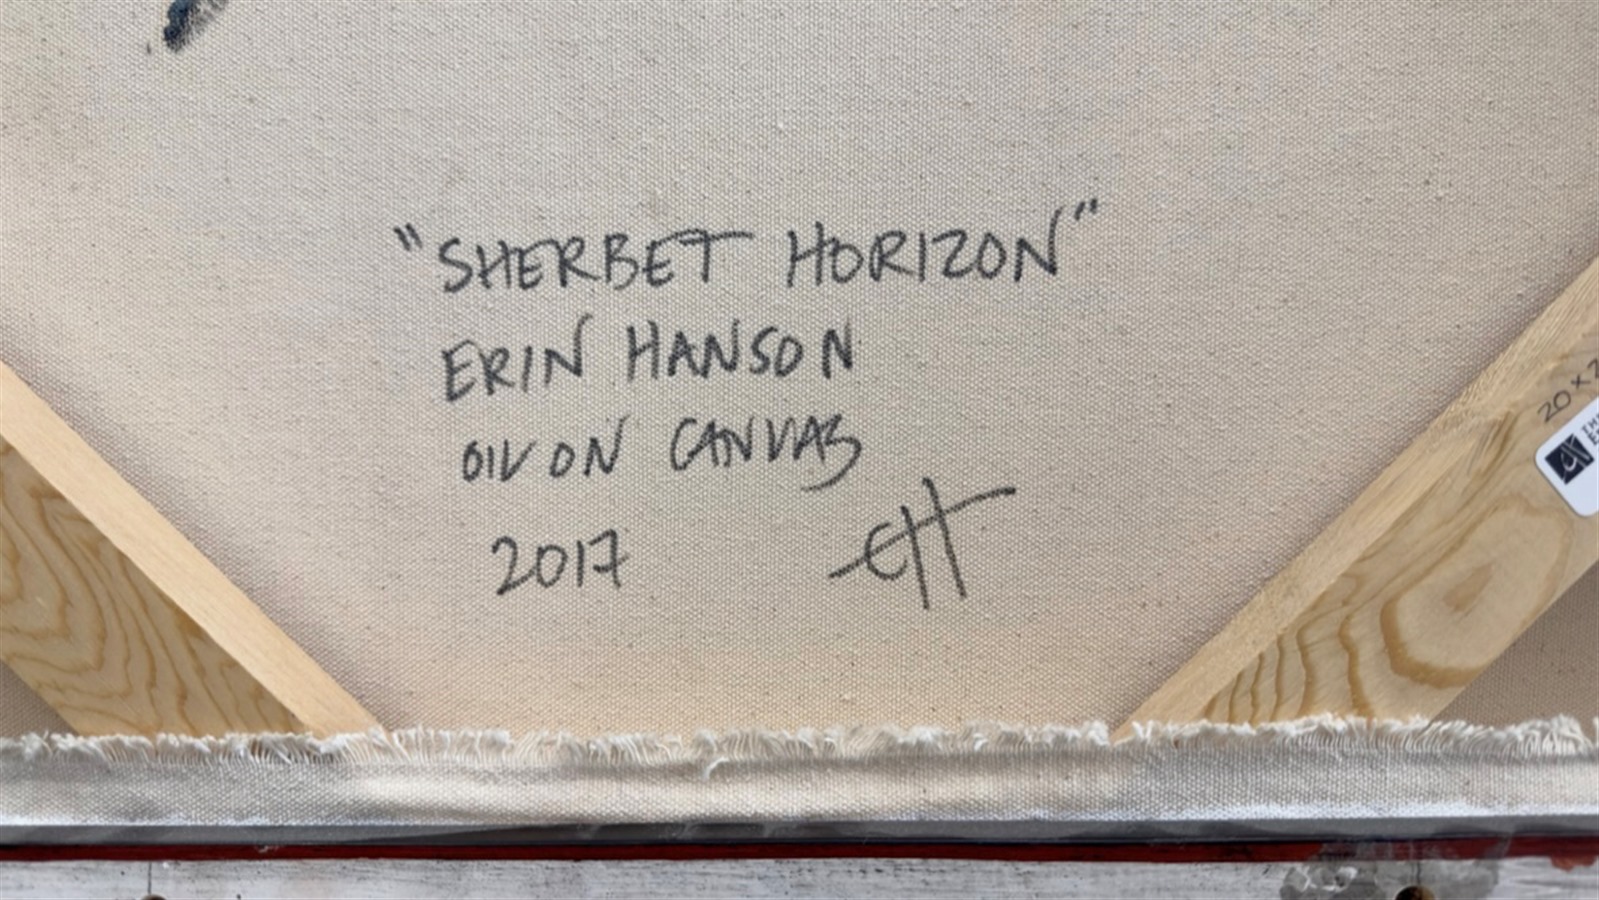 "SHERBET HORIZON"
ERIN HANSON
OIL ON CANVAS
2017 EH
20 X 2
TH
E